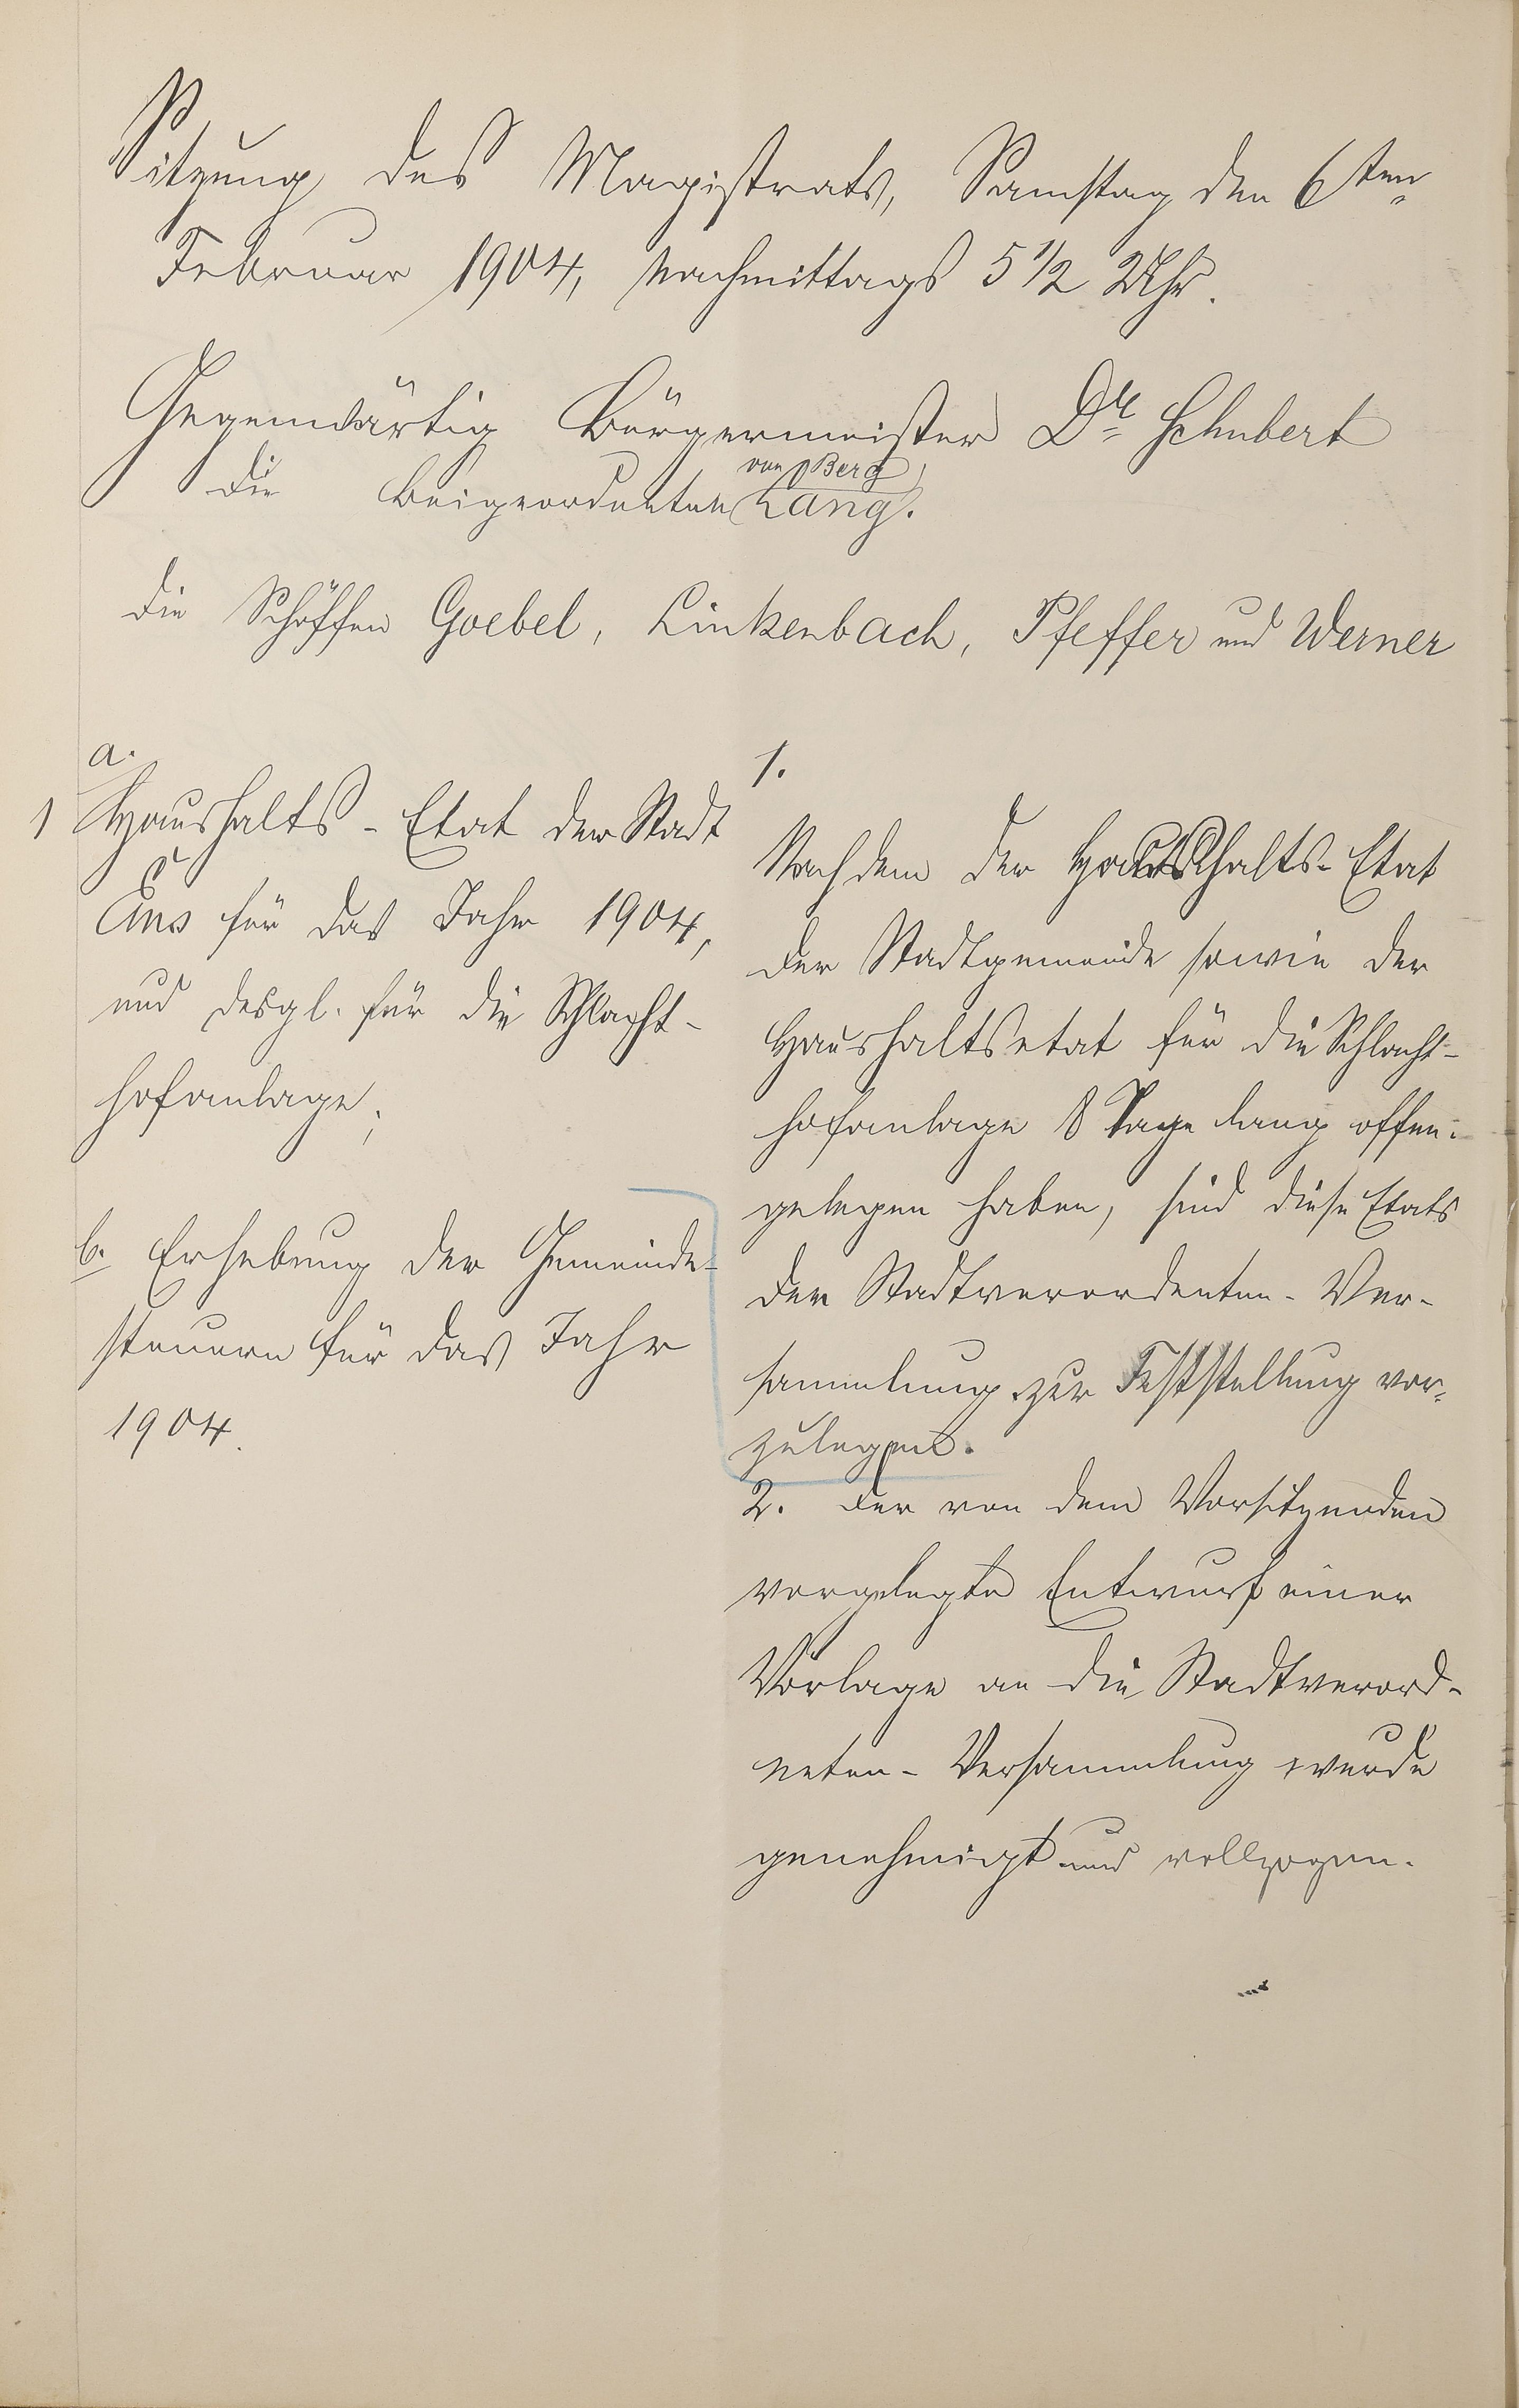 Sitzung des Magistrats, Samstag den 6ten
Februar 1904, Nachmittags 5 1/2 Uhr.
Gegenwärtig Bürgermeister Dr Schubert
von Berg
die Beigeordneten Lang.
die Schöffen Goebel, Linkenbach, Pfeffer und Werner
a.
1 Haushalts-Etat der Stadt
Ems für das Jahr 1904,
und desgl. für die Schlacht-
hofanlage;
b. Erhebung der Gemeinde-
steuern für das Jahr
1904.
1.
Nachdem der Haushalts-Etat
der Stadtgemeinde sowie der
Haushaltsetat für die Schlacht-
hofanlage 8 Tage lang offen-
gelegen haben, sind diese Etats
der Stadtverordneten-Ver-
sammlung zur Feststellung vor-
zulegen.
2. Der von dem Vorsitzenden
vorgelegte Entwurf einer
Vorlage an die Stadtverord-
neten-Versammlung wurde
genehmigt und vollzogen.